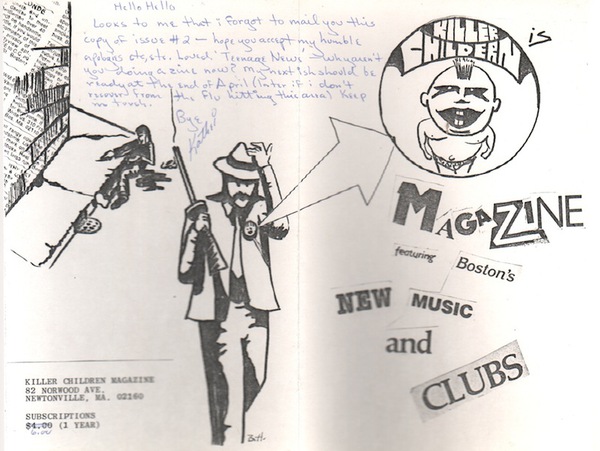 Hello Hello
Looks to me that i forgot to mail you this
copy of issue #2 — hope you accept my humble
apologies etc, etc. Loved Teenage News — why aren't
you doing a zine now? My next ish should be
ready at the end of April (later if i don't
recover from the flu hitting this area) Keep
in touch.
Bye
KILLER
CHILDERN
is
MAGAZINE
featuring Boston's
NEW MUSIC
and
CLUBS
KILLER CHILDREN MAGAZINE
82 NORWOOD AVE.
NEWTONVILLE, MA. 02160
SUBSCRIPTIONS
$4.00 (1 YEAR)
6.00